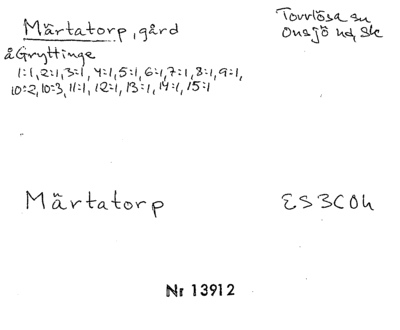 Märtatorp, gård
Torrlösa sn
Onsjö hd, Sk
å Gryttinge
1:1, 2:1, 3:1, 4:1, 5:1, 6:1, 7:1, 8:1, 9:1,
10:2, 10:3, 11:1, 12:1, 13:1, 14:1, 15:1
Märtatorp
ES3C0h
Nr 13912